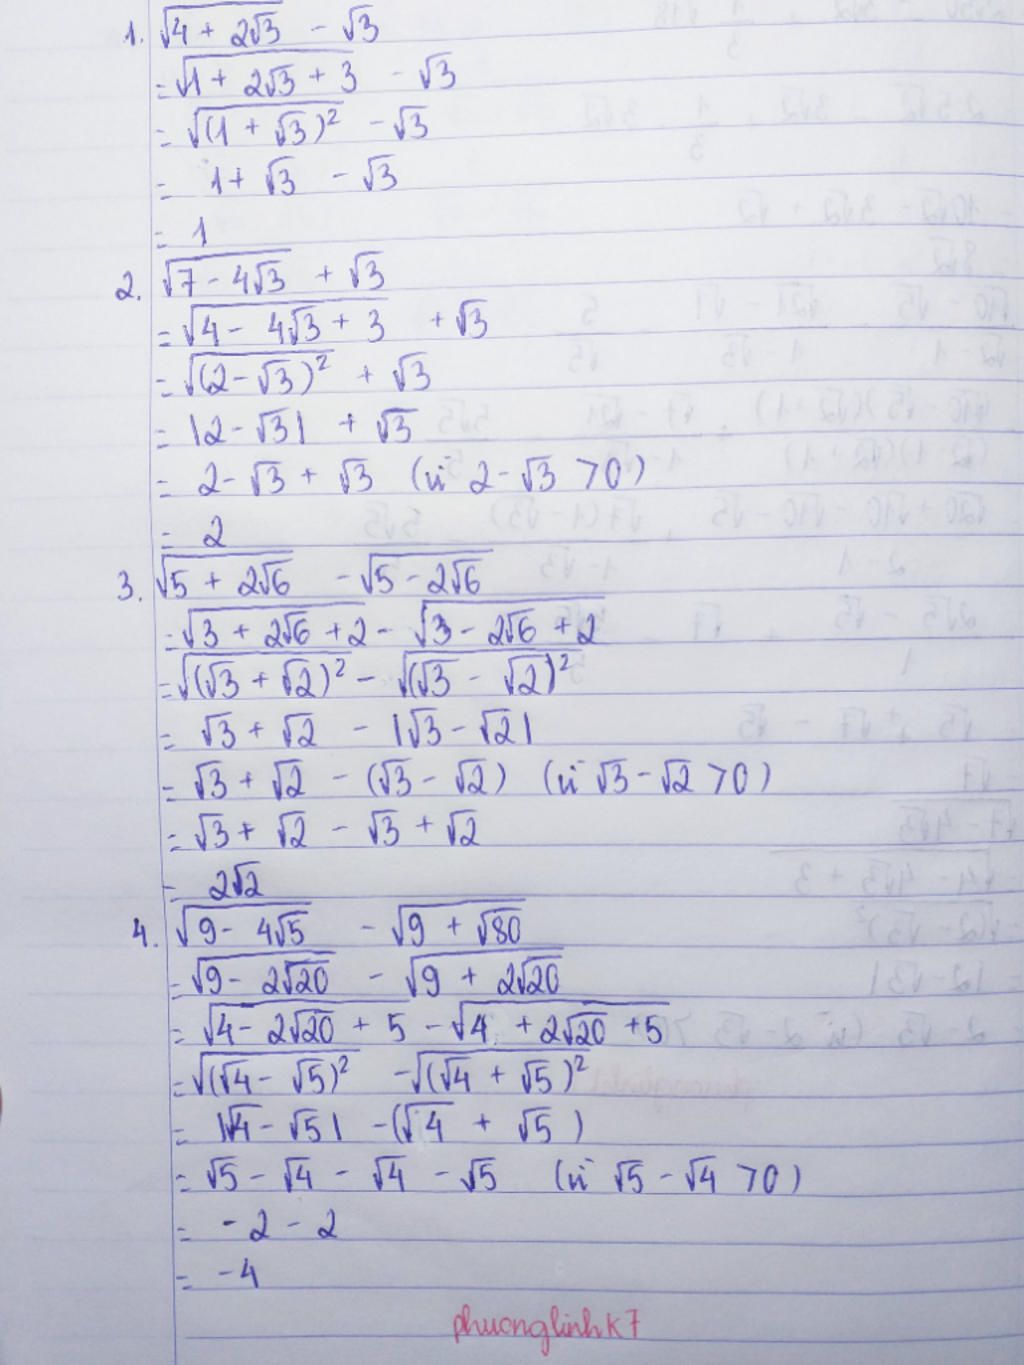 1. √(4 + 2√3) - √3
= √(1 + 2√3 + 3) - √3
= √((1 + √3)²) - √3
= 1 + √3 - √3
= 1
2. √(7 - 4√3) + √3
= √(4 - 4√3 + 3) + √3
= √((2 - √3)²) + √3
= |2 - √3| + √3
= 2 - √3 + √3 (vì 2 - √3 > 0)
= 2
3. √(5 + 2√6) - √(5 - 2√6)
= √(3 + 2√6 + 2) - √(3 - 2√6 + 2)
= √((√3 + √2)²) - √((√3 - √2)²)
= √3 + √2 - |√3 - √2|
= √3 + √2 - (√3 - √2) (vì √3 - √2 > 0)
= √3 + √2 - √3 + √2
= 2√2
4. √(9 - 4√5) - √(9 + √80)
= √(9 - 2√20) - √(9 + 2√20)
= √(4 - 2√20 + 5) - √(4 + 2√20 + 5)
= √((√4 - √5)²) - √((√4 + √5)²)
= |√4 - √5| - (√4 + √5)
= √5 - √4 - √4 - √5 (vì √5 - √4 > 0)
= -2 - 2
= -4
phuonglinhk7